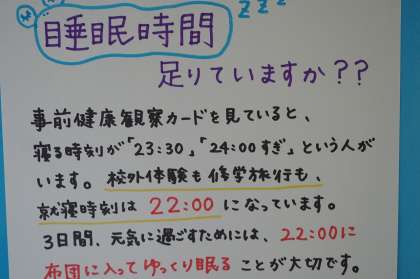 睡眠時間
足りていますか??
事前健康観察カードを見ていると、
寝る時刻が「23:30」「24:00すぎ」という人が
います。校外体験も修学旅行も、
就寝時刻は 22:00 になっています。
3日間、元気に過ごすためには、22:00に
布団に入ってゆっくり眠る ことが大切です。